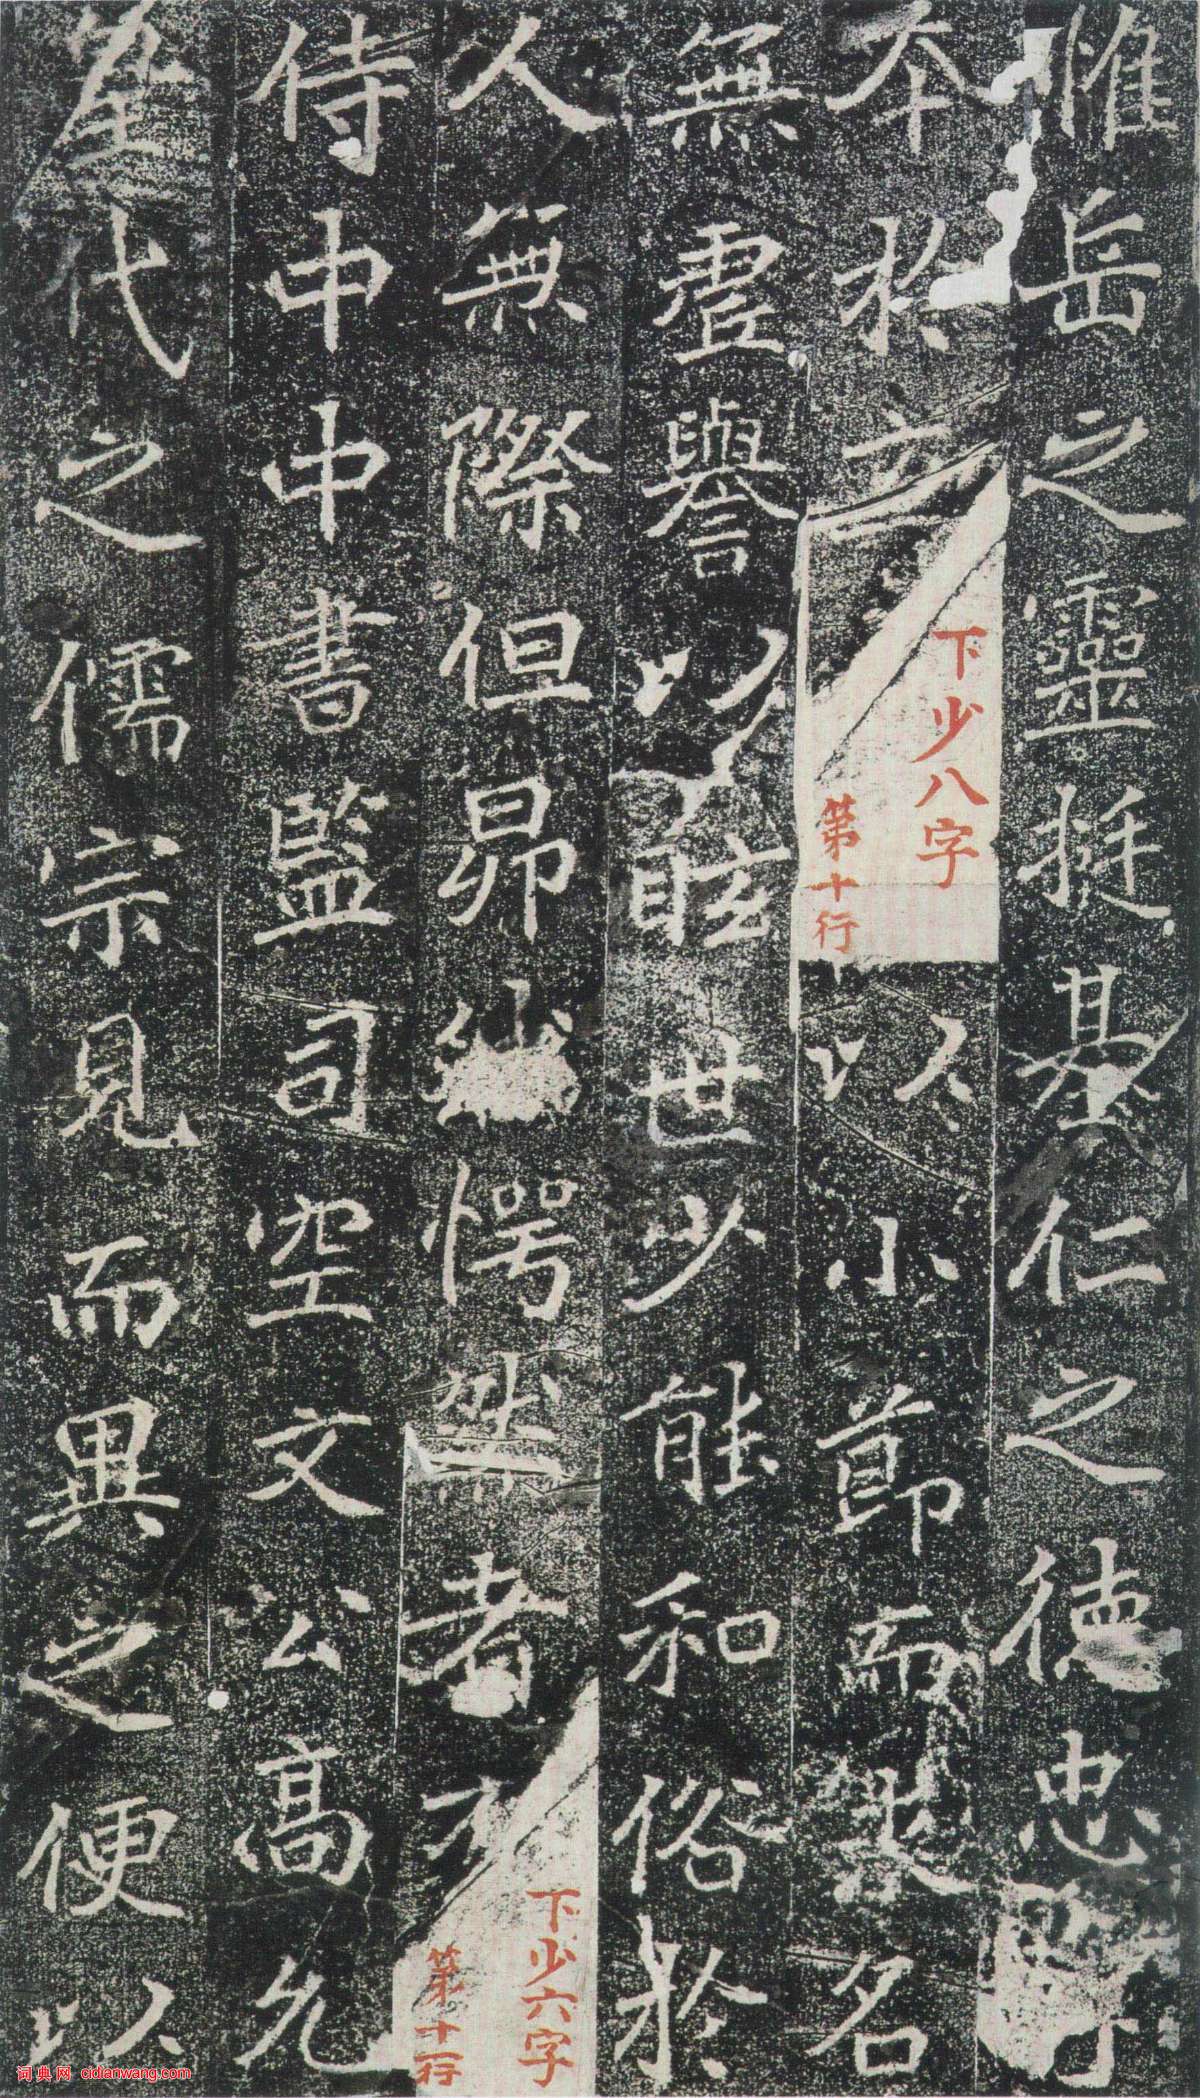 惟岳之靈挺基仁之德忠
本於立
下少八字
第十行
以小節而求名
無虛譽以眩世少能和俗於
人無際但昂
愕然者
下少六字
第十一行
侍中中書監司空文公高允
皇代之儒宗見而異之便以
词典网 cidianwang.com